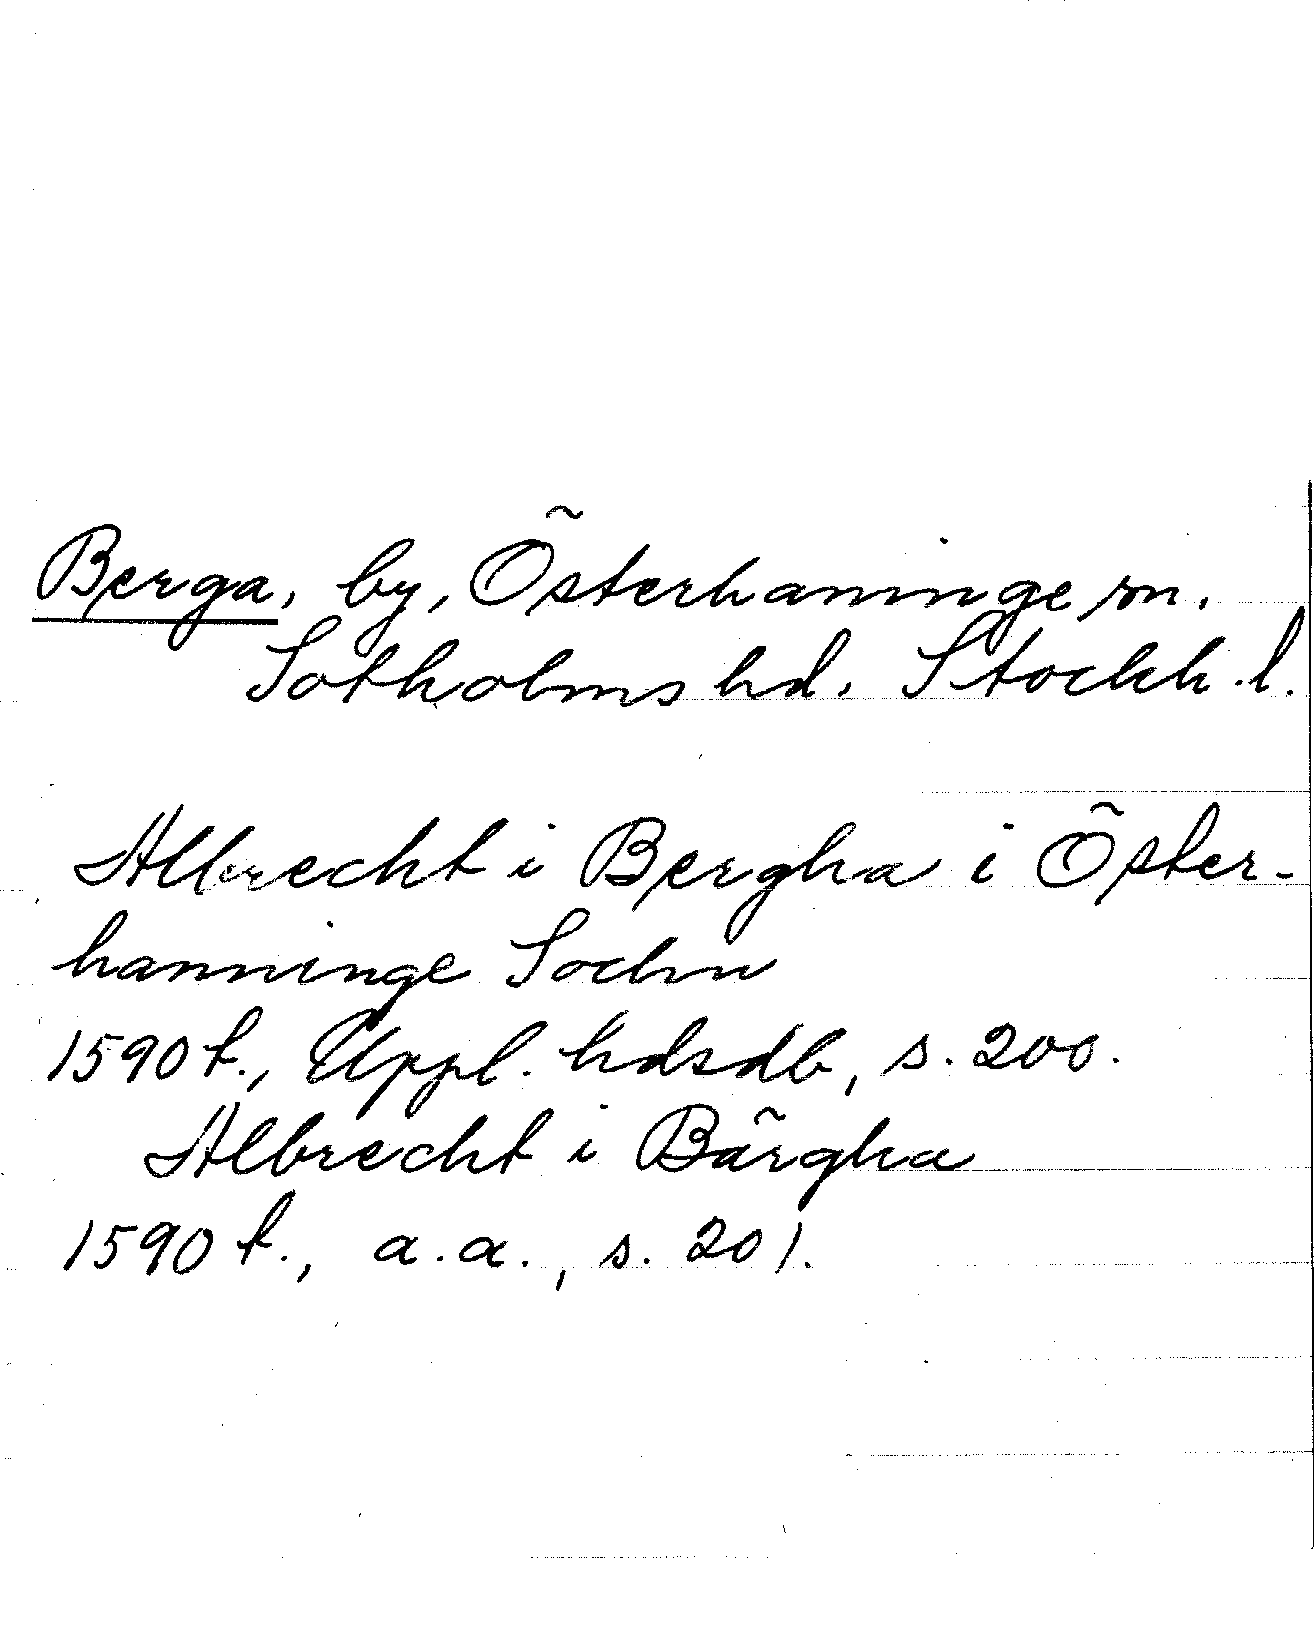 Berga, by, Österhaninge sn.
Sotholms hd. Stockh. l.
Albrecht i Bergha i Öster-
hanninge Sochn
1590 t., Uppl. hdsdb, s. 200.
Albrecht i Bärgha
1590 t., a.a., s. 201.